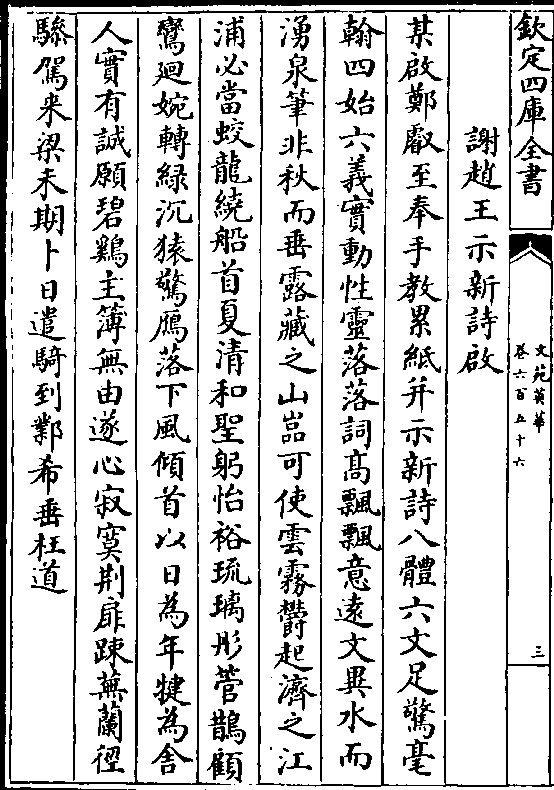 欽定四庫全書
文苑英華
卷六百五十六
三
謝趙王示新詩啟
某啟鄭叡至奉手教累紙并示新詩八體六文足驚毫
翰四始六義實動性靈落落詞髙飄飄意遠文異水而
湧泉筆非秋而垂露藏之山嵓可使雲霧欝起濟之江
浦必當蛟龍繞船首夏清和聖躬怡裕琉璃彤管鵲顧
鸞廻婉轉緑沉猿驚鴈落下風傾首以日為年犍為舍
人實有誠願碧鷄主簿無由遂心寂寞荆扉踈蕪蘭徑
驂駕来梁未期卜日遣騎到鄴希垂枉道